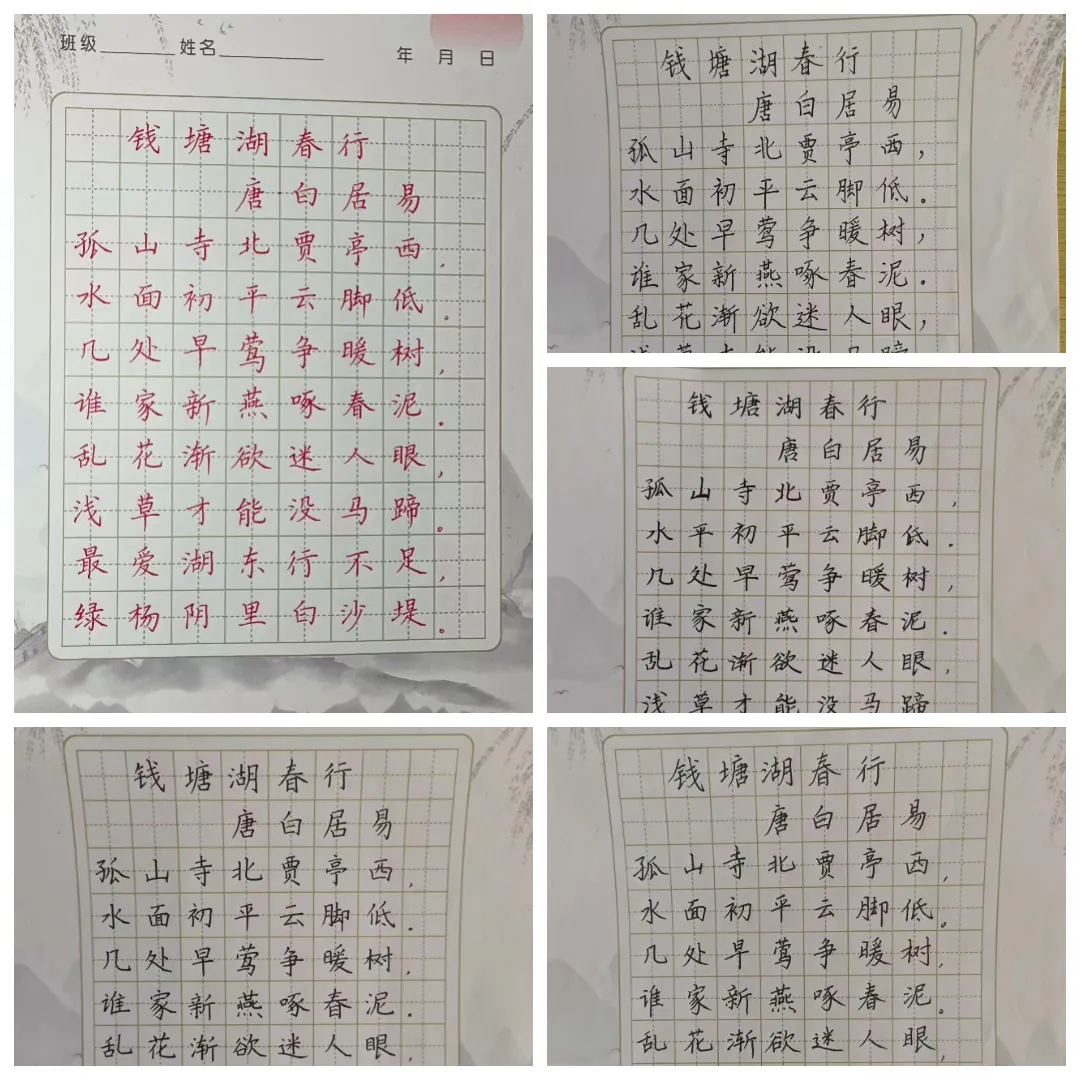 班级 姓名 年 月 日
钱塘湖春行
唐白居易
孤山寺北贾亭西,
水面初平云脚低。
几处早莺争暖树,
谁家新燕啄春泥。
乱花渐欲迷人眼,
浅草才能没马蹄。
最爱湖东行不足,
绿杨阴里白沙堤。
钱塘湖春行
唐白居易
孤山寺北贾亭西,
水面初平云脚低.
几处早莺争暖树,
谁家新燕啄春泥.
乱花渐欲迷人眼,
浅草才能没马蹄
钱塘湖春行
唐白居易
孤山寺北贾亭西,
水平初平云脚低.
几处早莺争暖树,
谁家新燕啄春泥.
乱花渐欲迷人眼,
浅草才能没马蹄
钱塘湖春行
唐白居易
孤山寺北贾亭西,
水面初平云脚低.
几处早莺争暖树,
谁家新燕啄春泥.
乱花渐欲迷人眼,
钱塘湖春行
唐白居易
孤山寺北贾亭西,
水面初平云脚低。
几处早莺争暖树,
谁家新燕啄春泥。
乱花渐欲迷人眼,